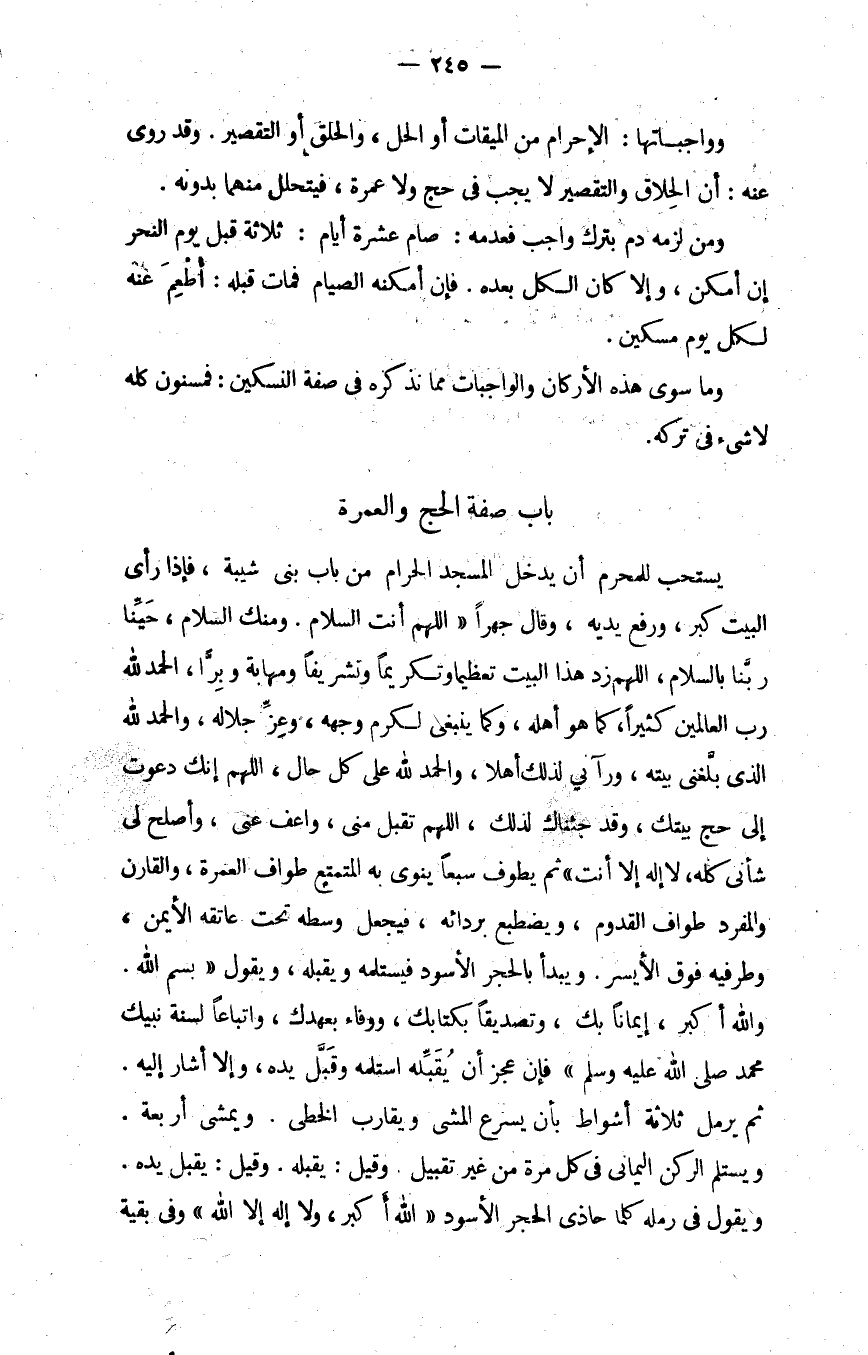 — ٢٤٥ —
وواجبـاتها : الإحرام من الميقات أو الحل ، والحلق أو التقصير . وقد روى
عنه : أن الحِلاق والتقصير لا يجب فى حج ولا عمرة ، فيتحلل منهما بدونه .
ومن لزمه دم بترك واجب فعدمه : صام عشرة أيام : ثلاثة قبل يوم النحر
إن أمكن ، وإلا كان الـكل بعده . فإن أمكنه الصيام فمات قبله : أُطْعِمَ عَنْهُ
لـكل يوم مسكين .
وما سوى هذه الأركان والواجبات مما نذكره فى صفة النسكين : فمسنون كله
لاشىء فى تركه.
باب صفة الحج والعمرة
يستحب للمحرم أن يدخل المسجد الحرام من باب بنى شيبة ، فإذا رأى
البيت كبر ، ورفع يديه ، وقال جهراً « اللهم أنت السلام . ومنك السلام ، حَيِّنا
ربَّنا بالسلام ، اللهم زد هذا البيت تعظيما وتـكريماً وتشريفاً ومهابة وبِرًّا ، الحمد لله
رب العالمين كثيراً، كما هو أهله ، وكما ينبغى لـكرم وجهه ، وعِزِّ جلاله ، والحمد لله
الذى بلَّغنى بيته ، ورآني لذلك أهلا ، والحمد لله على كل حال ، اللهم إنك دعوت
إلى حج بيتك ، وقد جئناك لذلك ، اللهم تقبل منى ، واعف عنى ، وأصلح لى
شأنى كله، لا إله إلا أنت» ثم يطوف سبعاً ينوى به المتمتع طواف العمرة ، والقارن
والمفرد طواف القدوم ، ويضطبع بردائه ، فيجعل وسطه تحت عاتقه الأيمن ،
وطرفيه فوق الأيسر . ويبدأ بالحجر الأسود فيستلمه ويقبله ، ويقول « بسم الله .
والله أكبر ، إيماناً بك ، وتصديقاً بكتابك ، ووفاء بعهدك ، واتباعاً لسنة نبيك
محمد صلى الله عليه وسلم » فإن عجز أن يُقَبِّله استلمه وقَبَّل يده ، وإلا أشار إليه .
ثم يرمل ثلاثة أشواط بأن يسرع المشى ويقارب الخطى . ويمشى أربعة .
ويستلم الركن اليمانى فى كل مرة من غير تقبيل . وقيل : يقبله . وقيل : يقبل يده .
ويقول فى رمله كلما حاذى الحجر الأسود « الله أَكبر ، ولا إله إلا الله » وفى بقية